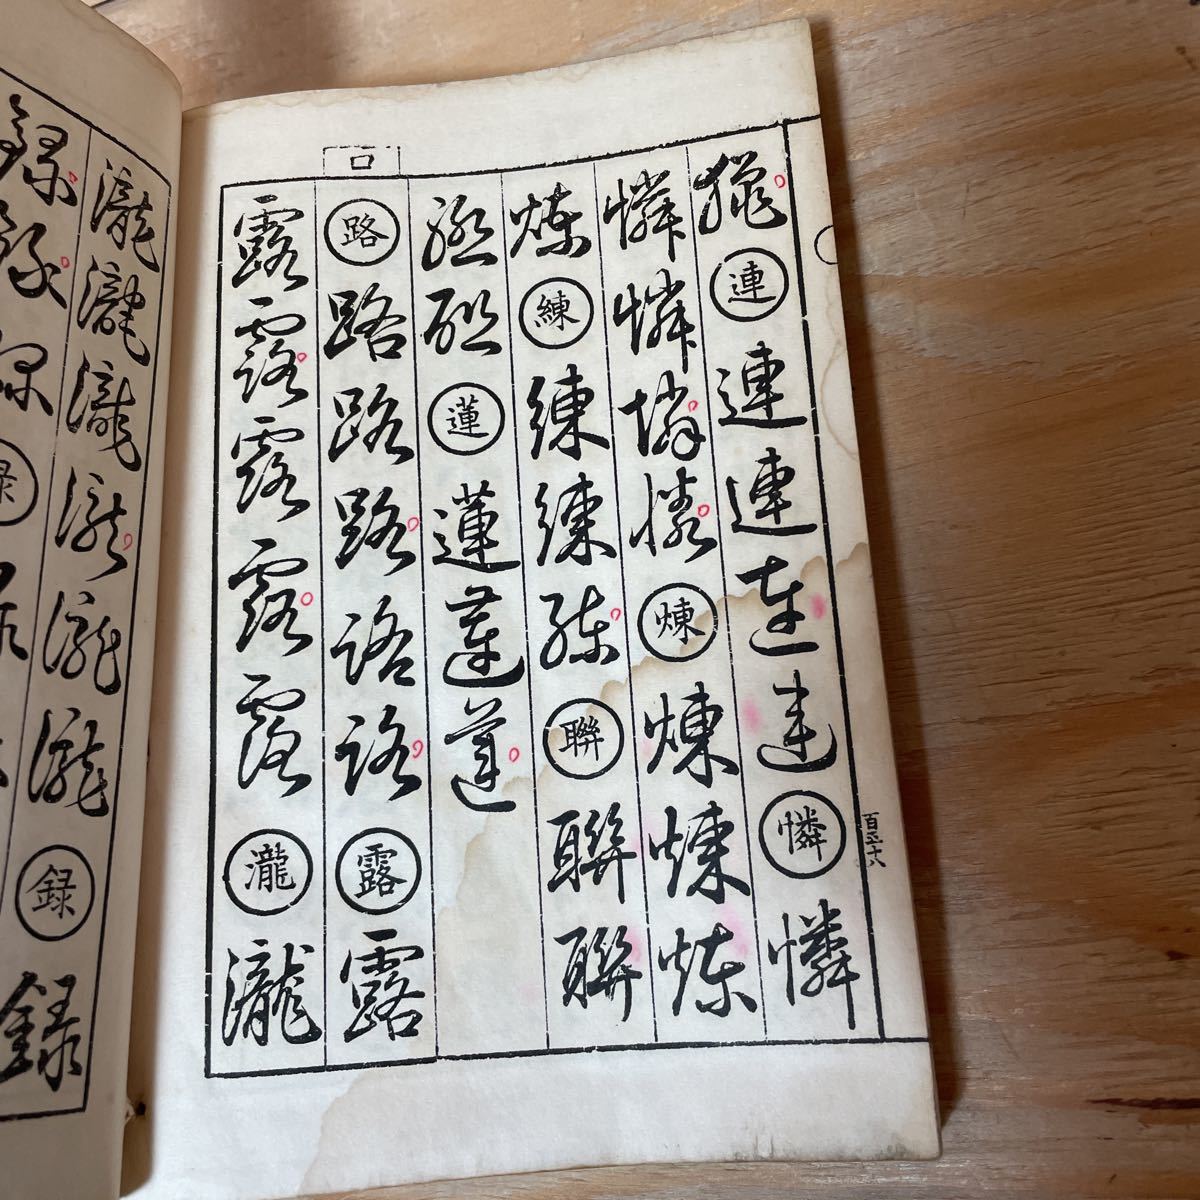 連連連連連憐憐
憐憐憐憐煉煉煉煉
煉練練練練聯聯聯
聯聯蓮蓮蓮蓮
ロ
路路路路路路露露
露露露露露瀧瀧
瀧瀧瀧瀧瀧瀧録録